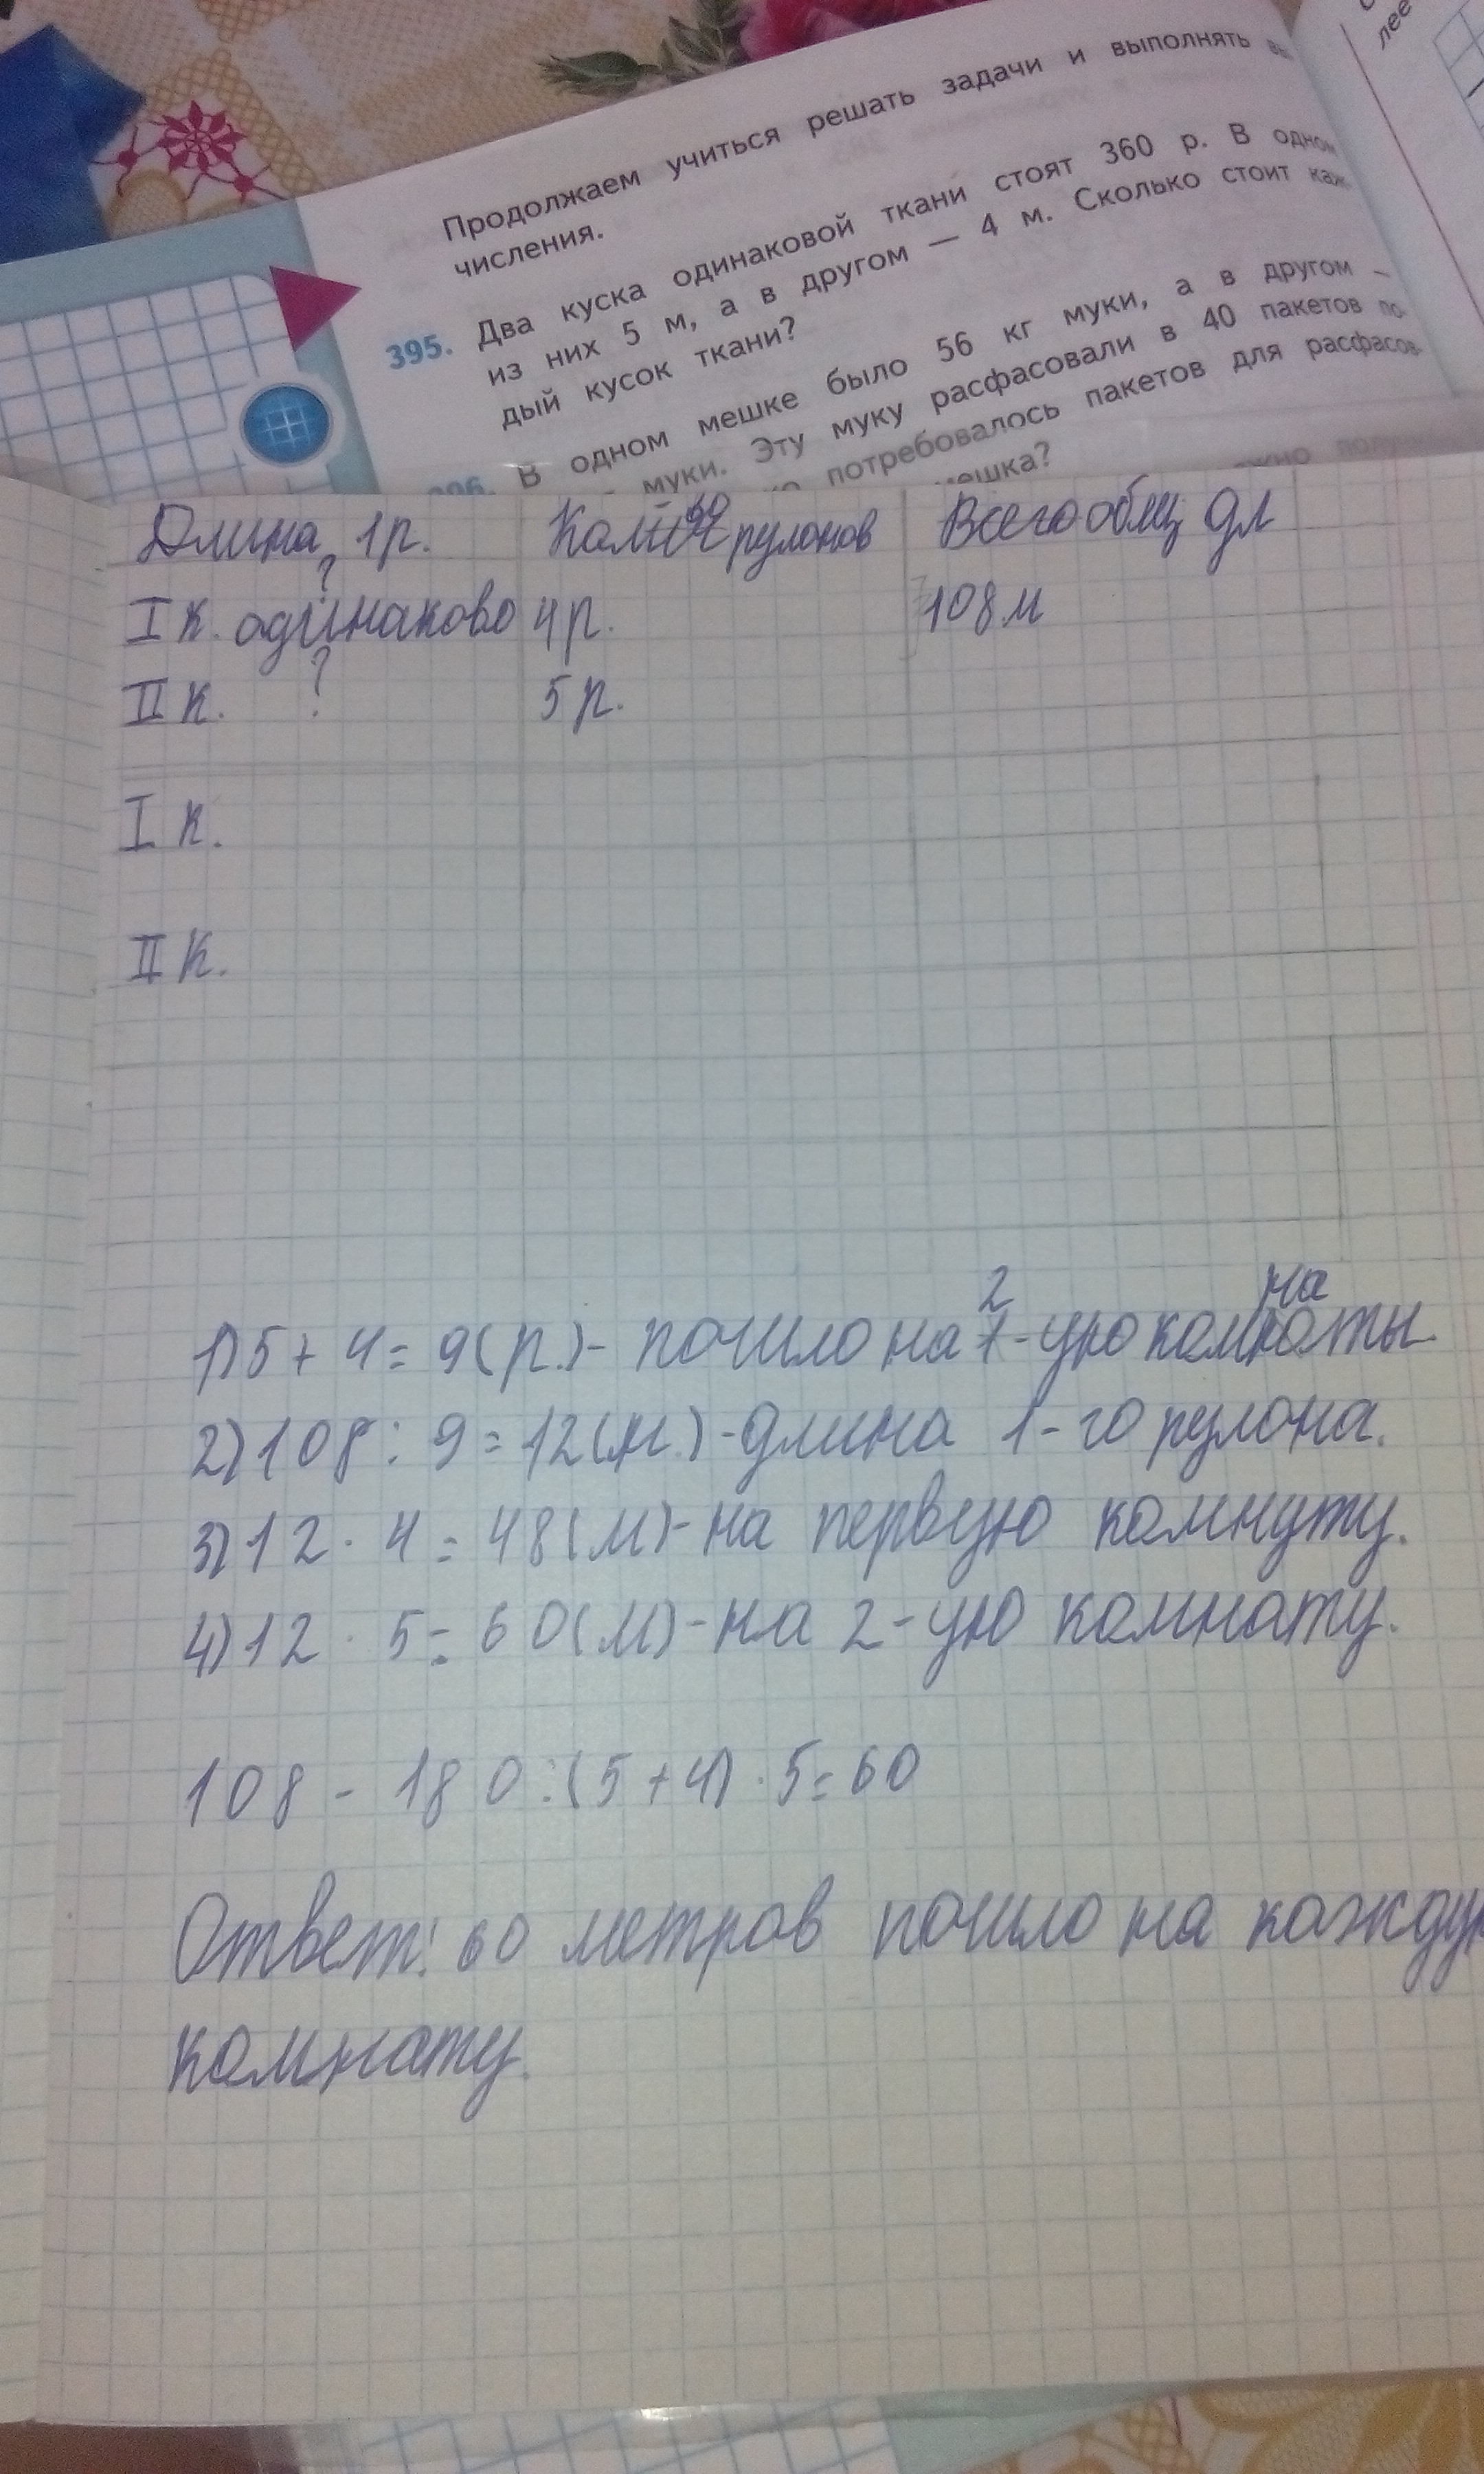 Продолжаем учиться решать задачи и выполнять вы
числения.
395. Два куска одинаковой ткани стоят 360 р. В одном
из них 5 м, а в другом — 4 м. Сколько стоит каж
дый кусок ткани?
396. В одном мешке было 56 кг муки, а в другом –
муки. Эту муку расфасовали в 40 пакетов по
потребовалось пакетов для расфасов
мешка?
Длина 1р. рулонов Всего общ дл
?
I к. одинаково 4р. 108м
II к. ? 5 р.
I к.
II к.
2 на
1) 5 + 4 = 9 (р.) - пошло на 1-ую комноты.
2) 108 : 9 = 12 (м.) - длина 1-го рулона.
3) 12 · 4 = 48 (м) - на первую комнуту.
4) 12 · 5 = 60 (м) - на 2-ую комнату.
108 - 180 : (5 + 4) · 5 = 60
Ответ: 60 метров пошло на кажду
комнату.